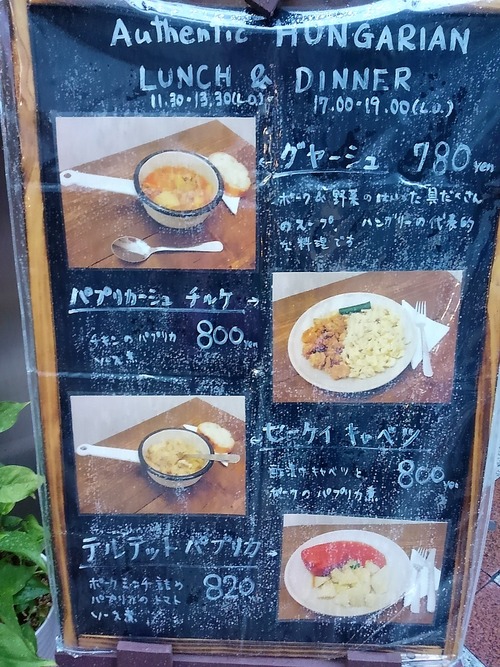 Authentic HUNGARIAN
LUNCH & DINNER
11.30-13.30(L.O.) 17.00-19.00(L.O.)
グヤーシュ 780 yen
ポーク&野菜のはいった具だくさん
のスープ。ハンガリーの代表的
な料理です
パプリカーシュ チルケ →
チキンのパプリカ
ソース煮
800 yen
セーケイ キャベツ
キャベツと
ポークのパプリカ煮
800 yen
テルテット パプリカ →
ポークミンチ詰めの
パプリカのトマト
ソース煮
820 yen